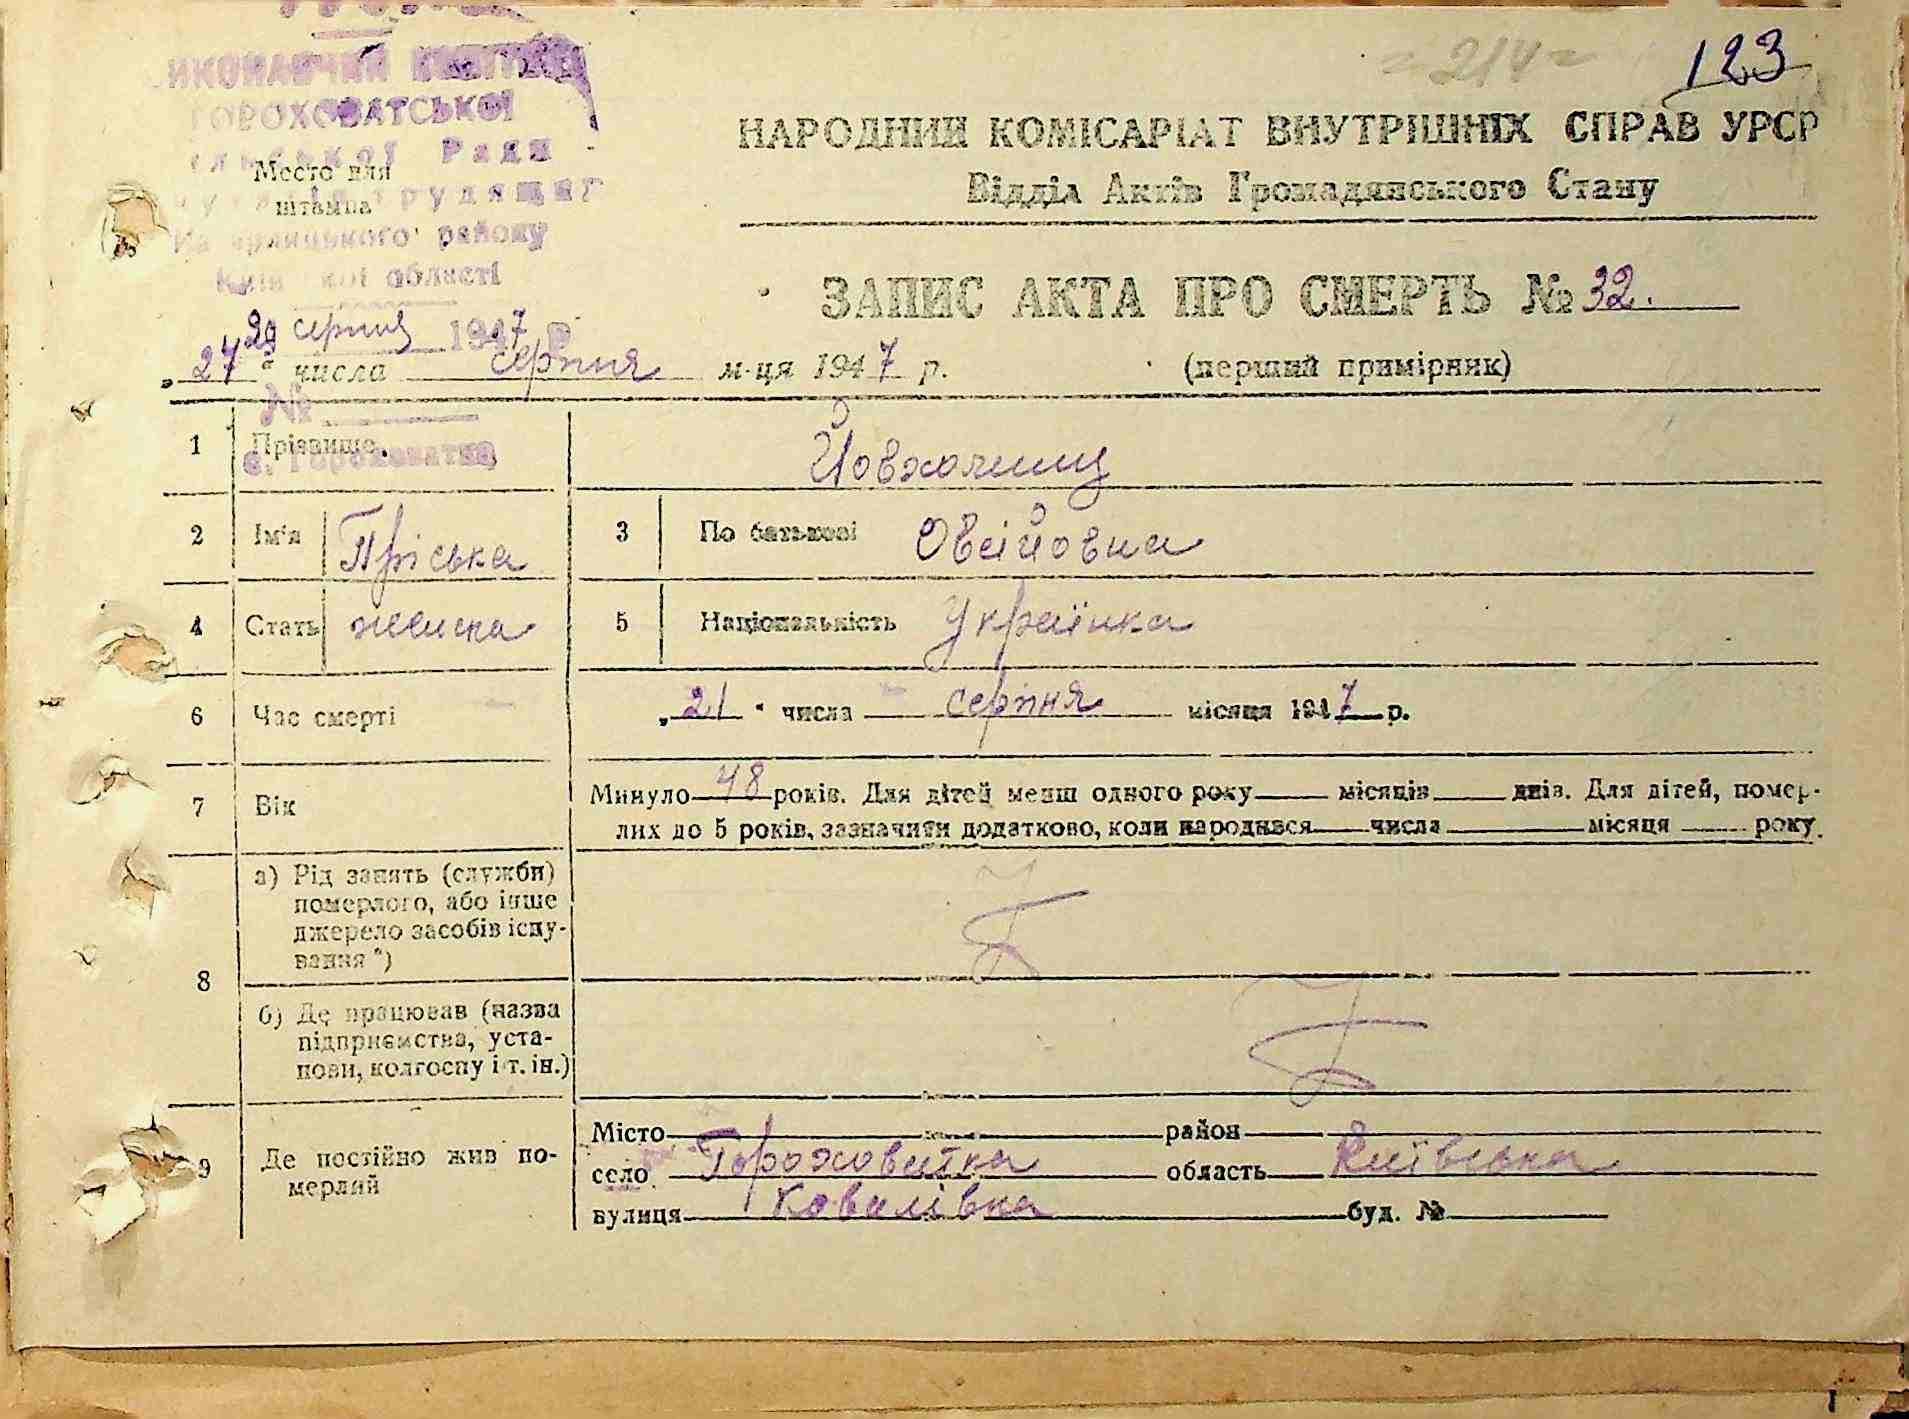 =214=
123
ГОРОХОВАТСЬКОЇ
Ради
району
області
Место для
штампа
29 серпня 1947 р
№
с. Гороховатка
НАРОДНИЙ КОМІСАРІАТ ВНУТРІШНІХ СПРАВ УРСР
Відділ Актів Громадянського Стану
ЗАПИС АКТА ПРО СМЕРТЬ № 32.
„27" числа серпня м-ця 1947 р. (перший примірник)
1 Прізвище.
2 Ім'я Пріська 3 По батькові Овсійовна
4 Стать 5 Національність Українка
6 Час смерті „21" числа серпня місяця 1947 р.
7 Вік Минуло 48 років. Для дітей менш одного року місяців днів. Для дітей, помер-
лих до 5 років, зазначити додатково, коли народився числа місяця року.
8 а) Рід занять (служби)
померлого, або інше
джерело засобів існу-
вання *)
б) Де працював (назва
підприємства, уста-
нови, колгоспу і т. ін.)
9 Де постійно жив по-
мерлий
Місто район
село Гороховатка область Київська
вулиця Ковалівка буд. №